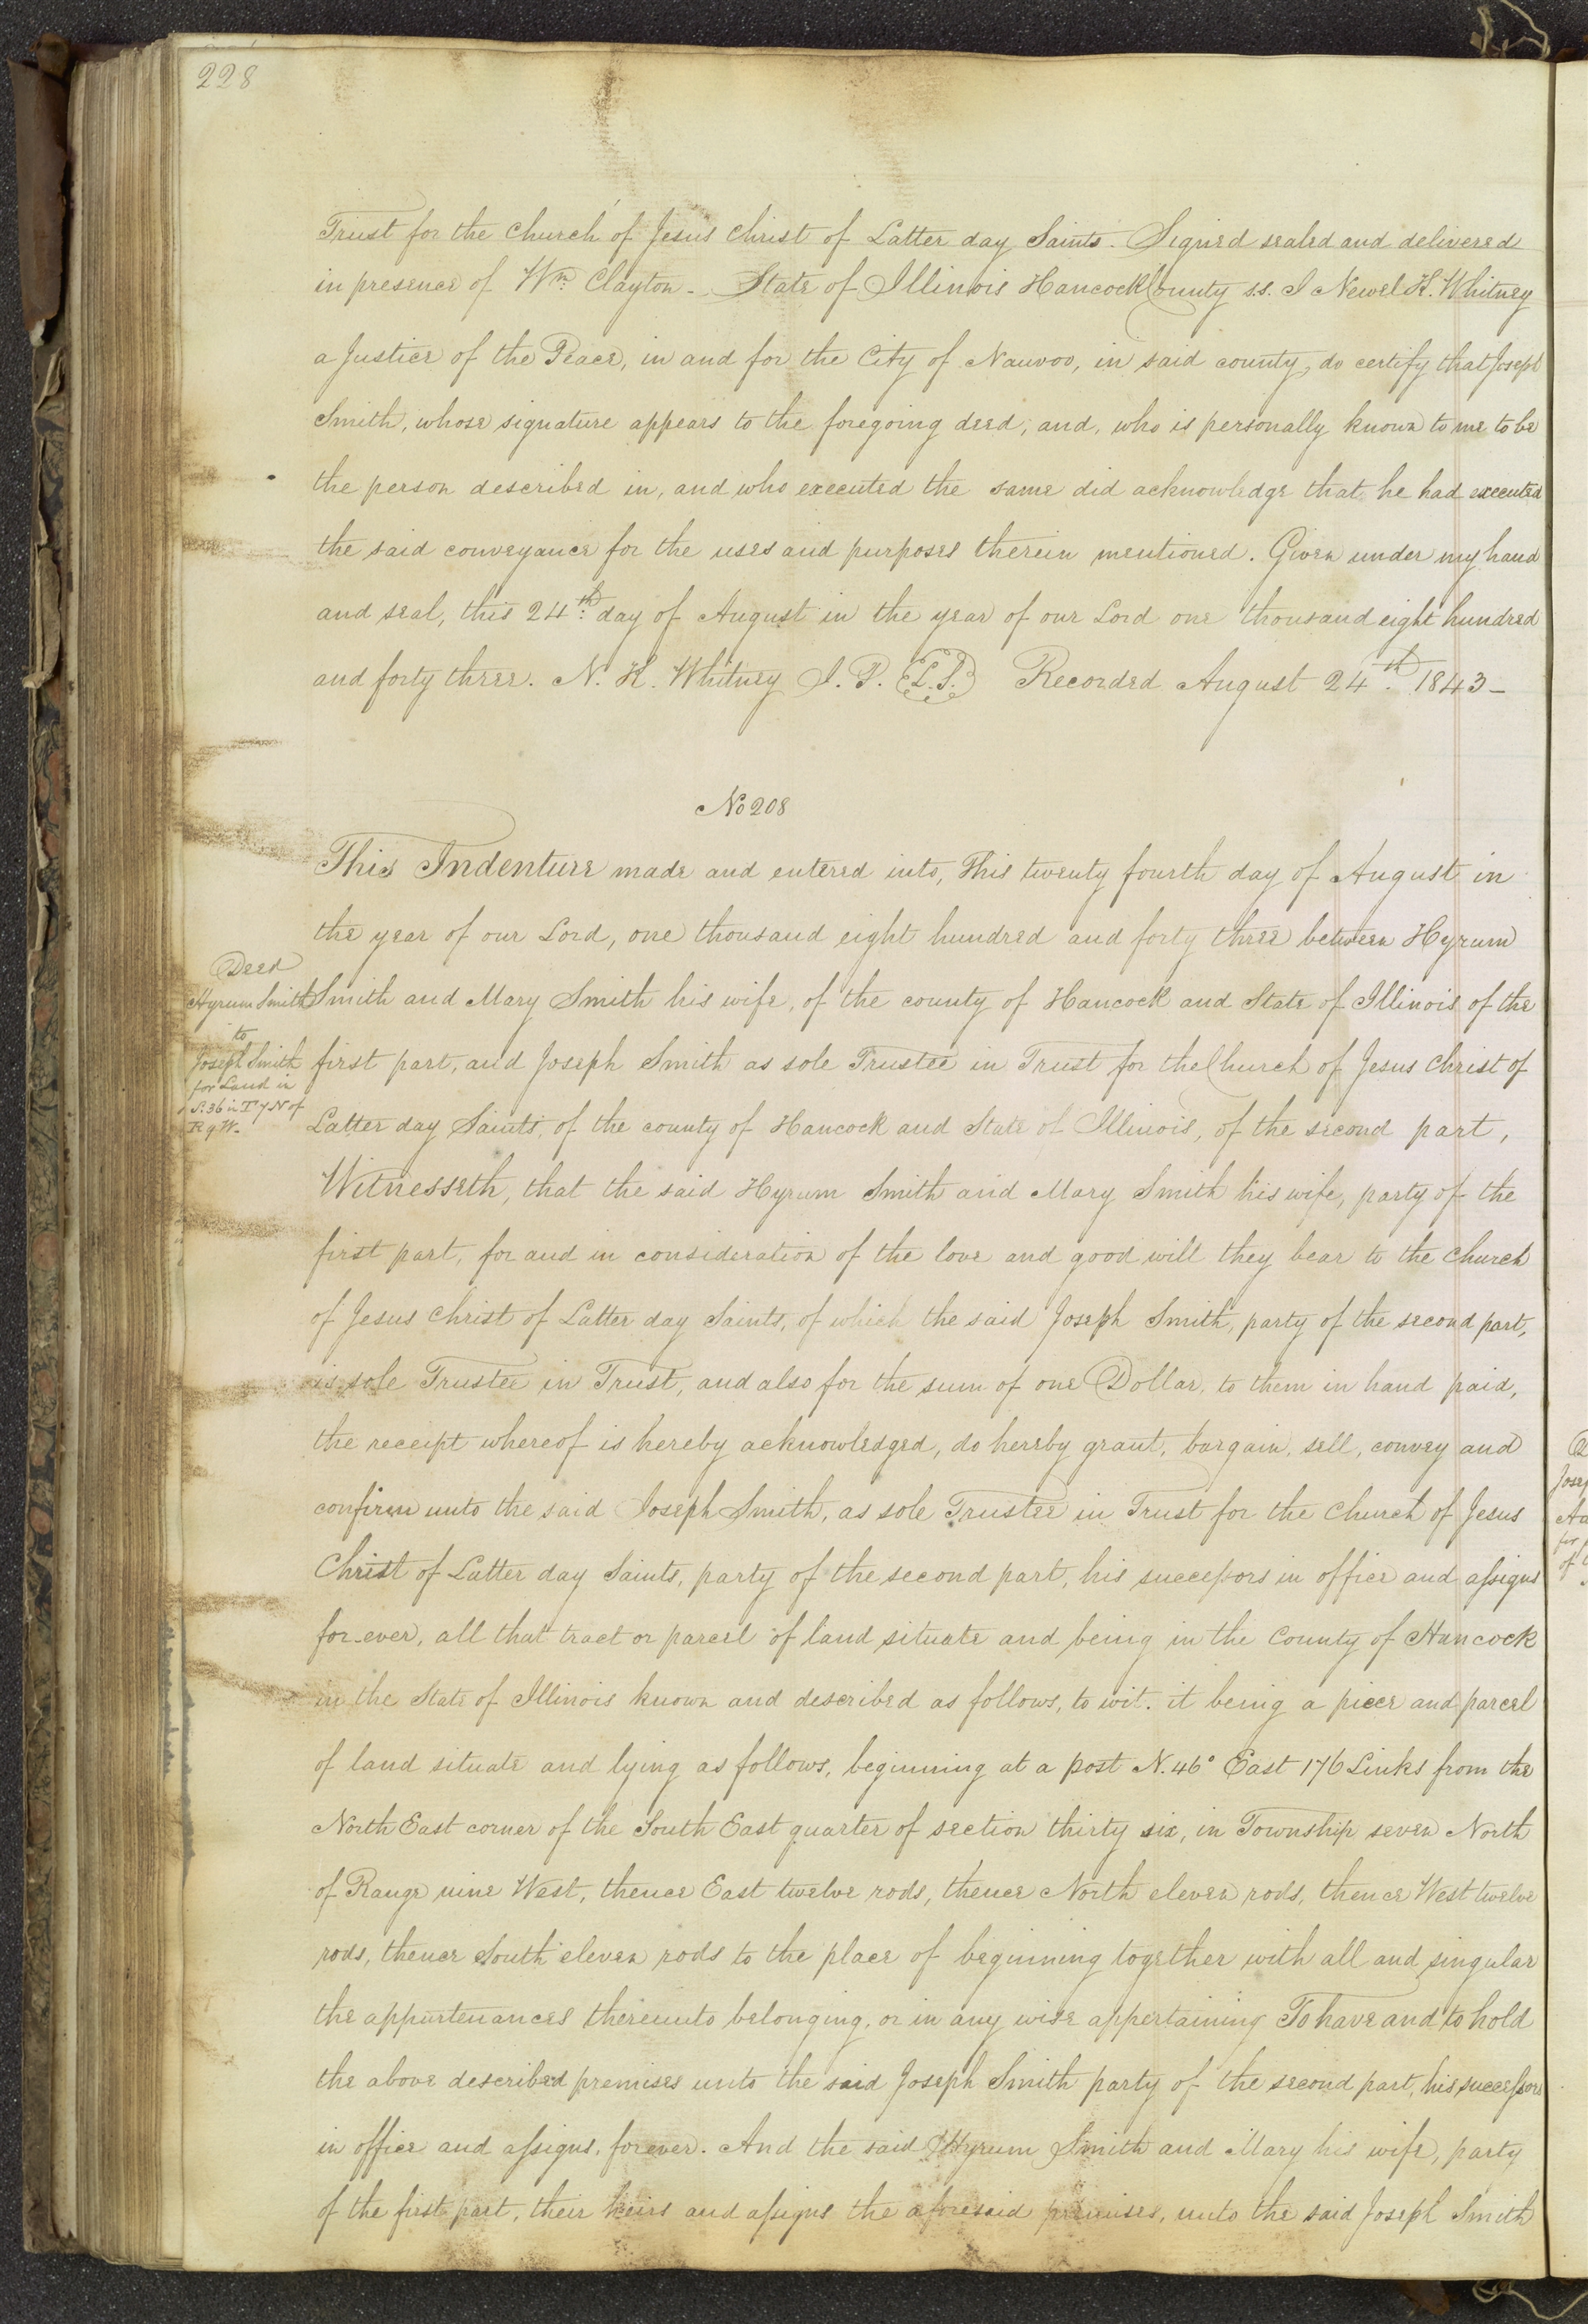 228
Trust for the Church of Jesus Christ of Latter day Saints. Signed sealed and delivered
in presence of Wm. Clayton - State of Illinois Hancock County s.s. I Newel K. Whitney
a Justice of the Peace, in and for the City of Nauvoo, in said county, do certify that Joseph
Smith, whose signature appears to the foregoing deed, and, who is personally known to me to be
the person described in, and who executed the same did acknowledge that he had executed
the said conveyance for the uses and purposes therein mentioned. Given under my hand
and seal, this 24th. day of August in the year of our Lord one thousand eight hundred
and forty three. N. K. Whitney J. P. L.S. Recorded August 24th. 1843 -
No 208
This Indenture made and entered into, This twenty fourth day of August in
the year of our Lord, one thousand eight hundred and forty three between Hyrum
Deed
Hyrum Smith
to
Joseph Smith
for Land in
S. 36 in T 7 N of
R 9 W.
Smith and Mary Smith his wife, of the county of Hancock and State of Illinois of the
first part, and Joseph Smith as sole Trustee in Trust for the Church of Jesus Christ of
Latter day Saints, of the county of Hancock and State of Illinois, of the second part,
Witnesseth, that the said Hyrum Smith and Mary Smith his wife, party of the
first part, for and in consideration of the love and good will they bear to the Church
of Jesus Christ of Latter day Saints, of which the said Joseph Smith, party of the second part,
is sole Trustee in Trust, and also for the sum of one Dollar, to them in hand paid,
the receipt whereof is hereby acknowledged, do hereby grant, bargain, sell, convey and
confirm unto the said Joseph Smith, as sole Trustee in Trust for the Church of Jesus
Christ of Latter day Saints, party of the second part, his successors in office and assigns
for-ever, all that tract or parcel of land situate and being in the County of Hancock
in the State of Illinois known and described as follows, to wit. it being a piece and parcel
of land situate and lying as follows, beginning at a post N. 46° East 176 Links from the
North East corner of the South East quarter of section thirty six, in Township seven North
of Range nine West, thence East twelve rods, thence North eleven rods, thence West twelve
rods, thence South eleven rods to the place of beginning together with all and singular
the appurtenances thereunto belonging, or in any wise appertaining To have and to hold
the above described premises unto the said Joseph Smith party of the second part, his successors
in office and assigns, forever. And the said Hyrum Smith and Mary his wife, party
of the first part, their heirs and assigns the aforesaid premises, unto the said Joseph Smith